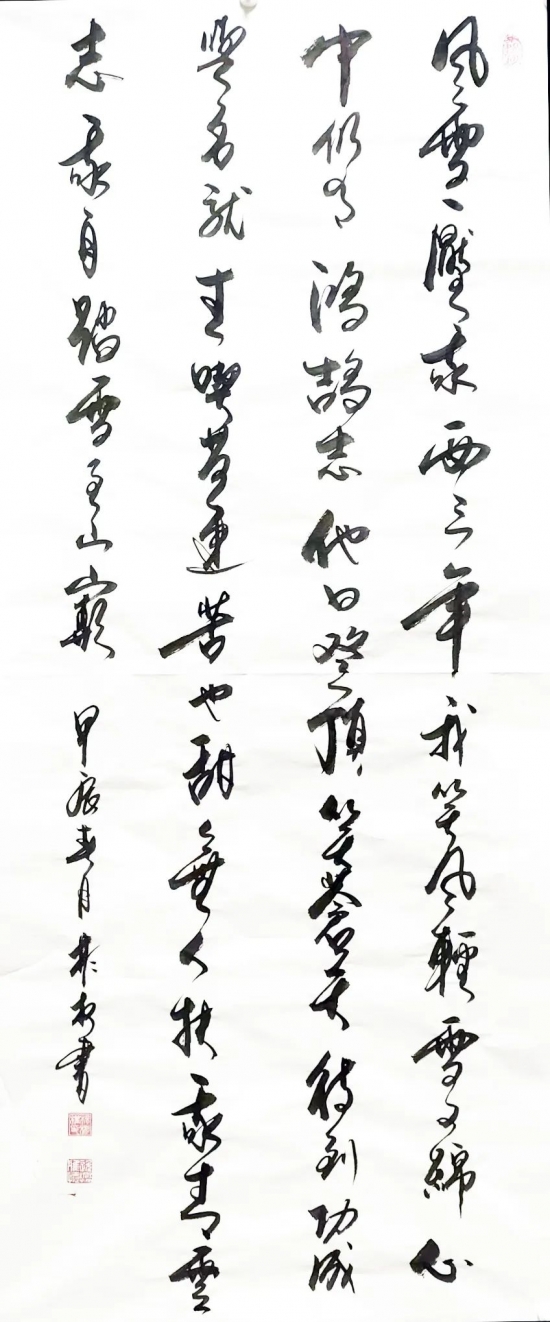 風雪壓我两三年我笑风輕雪又綿心
中仍有鴻鵠志他日登頂笑蒼天待到功成
譽名就生喫黄連苦也甜無人扶我青雲
志我自踏雪至山巔
甲辰春月書